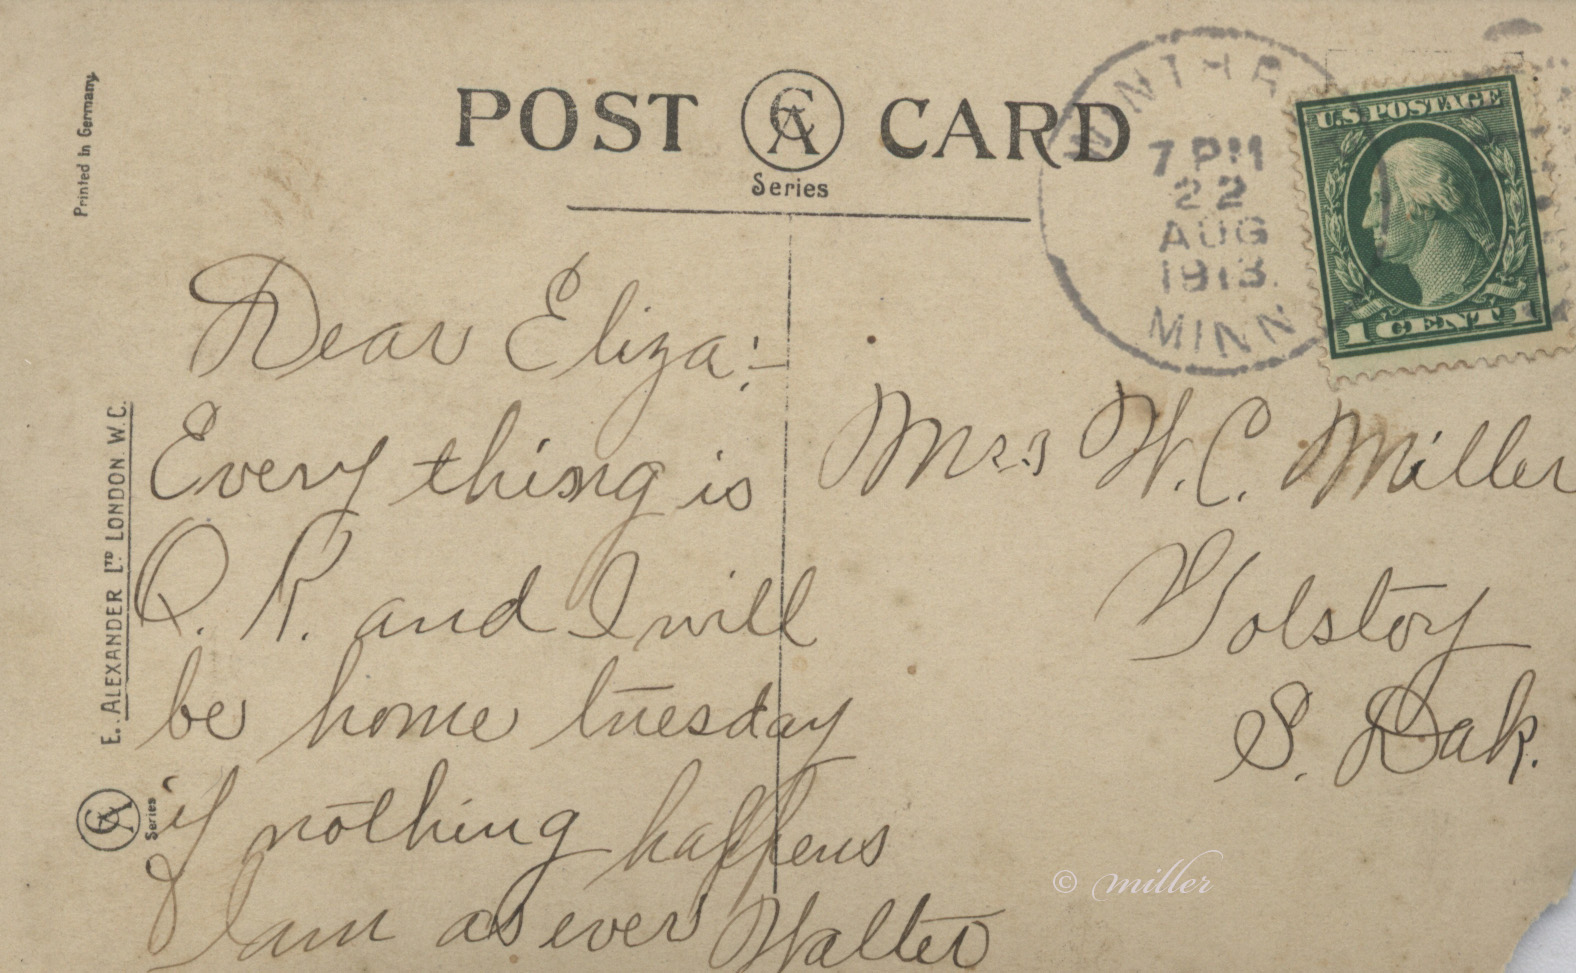 POST CARD
CA
Series
Printed in Germany.
E. ALEXANDER LTD LONDON W.C.
CA
Series
WINTHR
7 PM
22
AUG
1913.
MINN
U.S. POSTAGE
1 CENT 1
Dear Eliza:-
Every thing is
O. K. and I will
be home tuesday
if nothing happens
I am as ever Walter
Mrs W.C. Miller
Tolstoy
S. Dak.
© miller